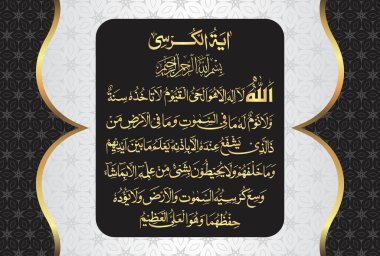 اية الكرسى
بسم الله الرحمن الرحيم
الله لا اله الا هو الحى القيوم لا تاخذه سنة
ولا نوم له ما فى السموت وما فى الارض من
ذا الذى يشفع عنده الا باذنه يعلم ما بين ايديهم
وما خلفهم ولا يحيطون بشىء من علمه الا بما شاء
وسع كرسيه السموت والارض ولا يؤده
حفظهما وهو العلى العظيم